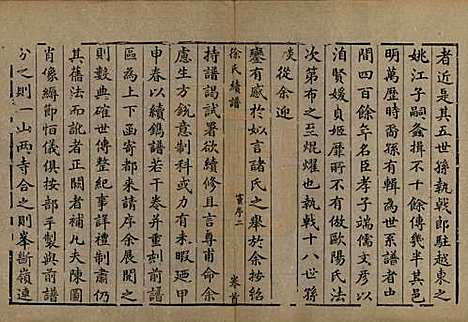 者近是其五世孫執戟郎駐越東之
姚江子嗣螽揖不十餘傳幾半其邑
明萬歷時裔孫有輯為世系譜者由
間四百餘年名臣孝子端儒文彥以
洎賢媛貞姬靡所不有倣歐陽氏法
次第布之至焜燿也執戟十八世孫
從余遊
徐氏續譜
舊序二
卷首
鑾有感於如言諸氏之舉於余按紹
持譜謁試署欲續修且言尊甫命余
慮生方銳意制科或力有未暇迺甲
申春以續鐫譜若干卷并重刻前譜
自上下函寄都來請序余展閱之
則數典確世傳整紀事詳禮制肅仍
其舊法而訛者闕者補凡夫陳圖
肖像縟節怕儀俱按部手製與前譜
分之則一山兩寺合之則峯斷嶺連